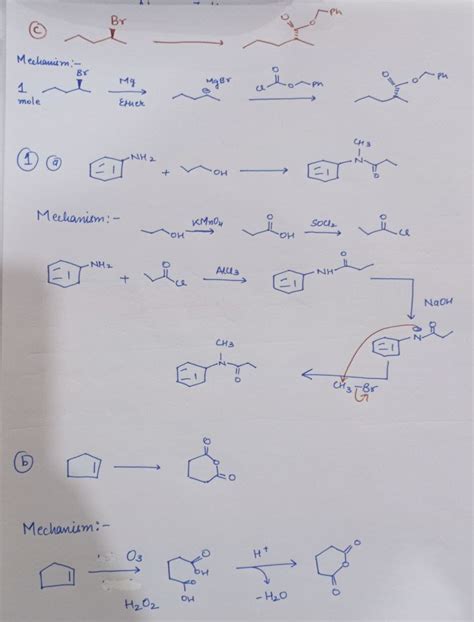 (c) Br O O Ph
Mechanism:-
1 mole Br Mg Ether MgBr Cl O O Ph O O Ph
(1) (a) NH2 + OH CH3 N O
Mechanism:-
OH KMnO4 O OH SOCl2 O Cl
NH2 + O Cl AlCl3 NH O
NaOH
CH3 N O N O
CH3-Br
(b) O O O
Mechanism:-
O3 H2O2 O OH O OH H+ -H2O O O O